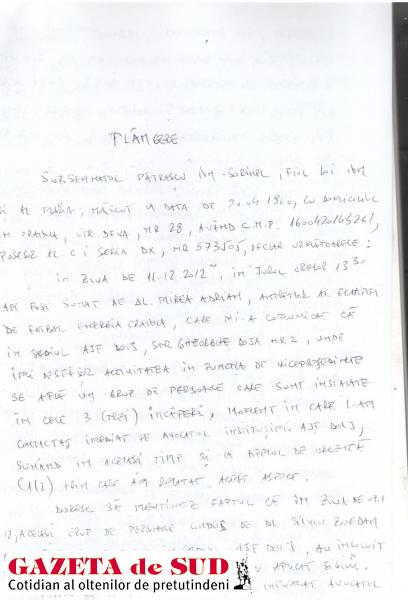 PLÂNGERE
SUBSEMNATUL PĂTRAȘCU ION-SORINEL, FIUL LUI ION
ȘI AL MARIA, NĂSCUT LA DATA DE 20.04.1960, CU DOMICILIUL
ÎN CRAIOVA, STR. DEVA, NR 28, AVÂND C.N.P. 1600420163261,
POSESOR AL C I SERIA DX, NR 573505, DECLAR URMĂTOARELE:
ÎN ZIUA DE 11.12.2012, ÎN JURUL ORELOR 13 30
AM FOST SUNAT DE DL. MIREA ADRIAN, ANTRENOR AL ECHIPEI
DE FOTBAL ENERGIA CRAIOVA, CARE MI-A COMUNICAT CĂ
ÎN SEDIUL AJF DOLJ, STR GHEORGHE DOJA NR 2, UNDE
ÎMI DESFĂȘOR ACTIVITATEA ÎN FUNCȚIA DE VICEPREȘEDINTE
SE AFLĂ UN GRUP DE PERSOANE CARE SUNT INSTALATE
ÎN CELE 3 (TREI) ÎNCĂPERI, MOMENT ÎN CARE L-AM
CONTACTAT IMEDIAT PE AVOCATUL INSTITUȚIEI AJF DOLJ,
SUNÂND ÎN ACELAȘI TIMP ȘI LA APELUL DE URGENȚĂ
(112) PRIN CARE AM RELATAT ACEST ASPECT.
DORESC SĂ MENȚIONEZ FAPTUL CĂ ÎN ZIUA DE
12, ACELAȘI GRUP DE PERSOANE CONDUS DE DL SILVIU BOGDAN
AJF DOLJ, AU ÎNLOCUIT
AU APLICAT SIGILII
AVOCATUL
GAZETA de SUD
Cotidian al oltenilor de pretutindeni